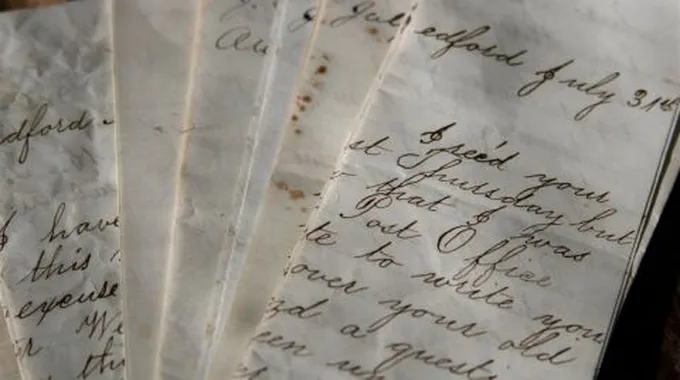 edford
I have
this
excuse
We
Au
Jul
edford July 31st
I rec'd your
st Thursday but
that I was
Post Office
te to write you
over your old
a questi
een